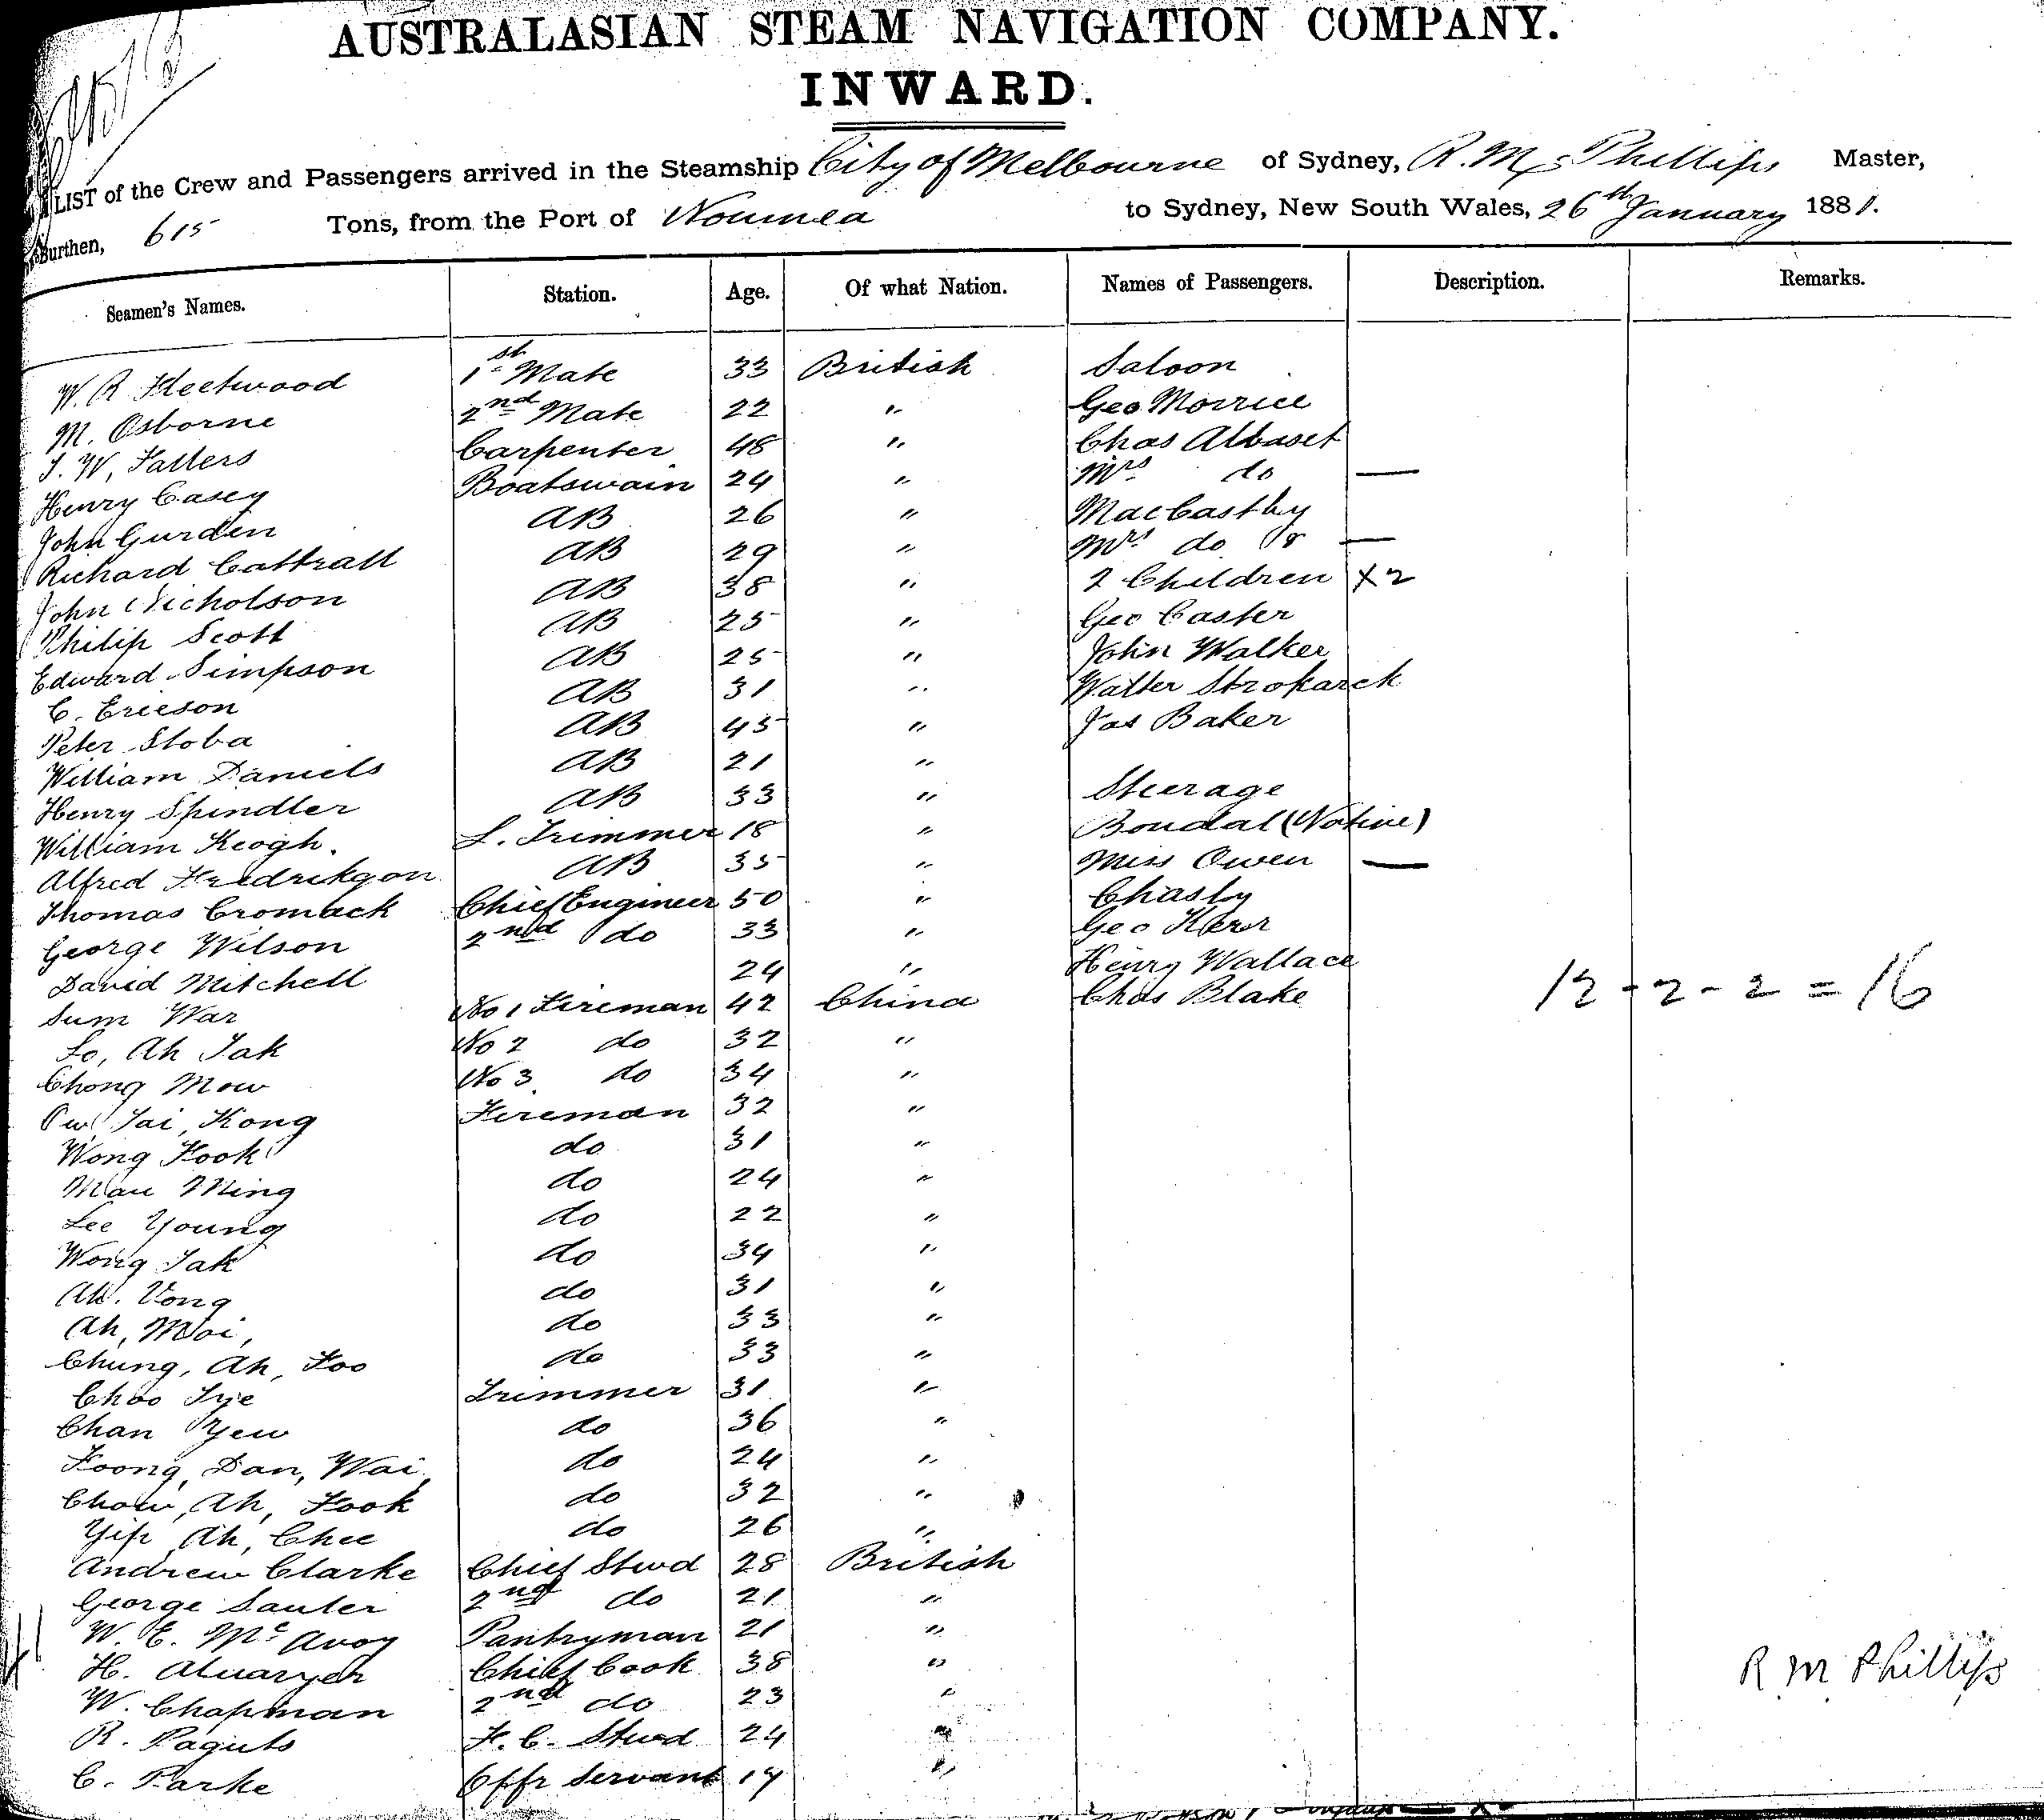 AUSTRALASIAN STEAM NAVIGATION COMPANY.
INWARD.
LIST of the Crew and Passengers arrived in the Steamship City of Melbourne of Sydney, R. M. Phillips Master,
Burthen, 615 Tons, from the Port of Noumea to Sydney, New South Wales, 26th January 1881.
Seamen's Names. Station. Age. Of what Nation. Names of Passengers. Description. Remarks.
W. R Fleetwood 1st Mate 33 British Saloon
M. Osborne 2nd Mate 22 " Geo Morrice
J. W, Falters Carpenter 48 " Chas Albaset
Henry Casey Boatswain 24 " Mrs do —
John Gurden AB 26 " MacCasthy
Richard Cattrall AB 29 " Mrs do & —
John Nicholson AB 38 " 2 Children X 2
Philip Scott AB 25 " Geo Caster
Edward Simpson AB 25 " John Walker
C. Ericson AB 31 " Walter Strokarck
Peter Stoba AB 45 " Jas Baker
William Daniels AB 21 "
Henry Spindler AB 33 " Steerage
William Keogh. L. Trimmer 18 " Boudal (Native)
Alfred Fredrikson AB 35 " Miss Owen —
Thomas Cromack Chief Engineer 50 " Chasly
George Wilson 2nd do 33 " Geo Kerr
David Mitchell 24 " Henry Wallace
Sum War No 1 Fireman 42 China Chas Blake 12 - 2 - 2 = 16
Lo, Ah Tak No 2 do 32 "
Chong Mow No 3 do 34 "
Ow Tai, Kong Fireman 32 "
Wong Fook do 31 "
Mau Ming do 24 "
Lee Young do 22 "
Wong Tak do 34 "
Ah. Vong do 31 "
Ah, Moi, do 33 "
Chung, Ah, Foo do 33 "
Choo Tye Trimmer 31 "
Chan Yew do 36 "
Foong, Dan, Wai, do 24 "
Chow, Ah, Fook do 32 "
Yip Ah, Chee do 26 "
Andrew Clarke Chief Stwd 28 British
George Sauter 2nd do 21 "
W. E. McAvoy Pantryman 21 "
H. Chief Cook 38 " R M Phillips
W. Chapman 2nd do 23 "
R. Paguts F. C. Stwd 24 "
C. Parke Offr Servant 17 "